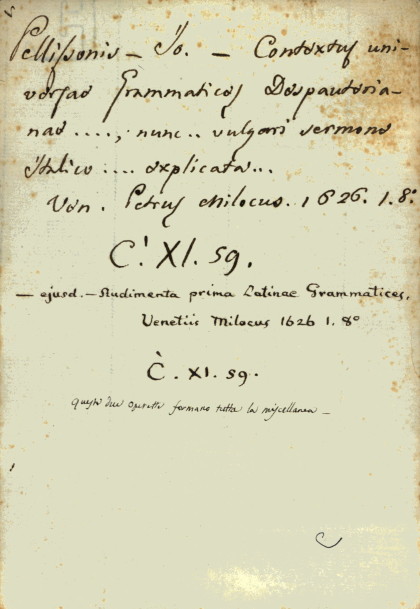 Pellissonis - Jo. - Contextus uni-
versae Grammatices Despauteria-
nae ...., nunc.. vulgari sermone
italico .... explicata...
Ven. Petrus Milocus. 1626. 1. 8.°
C! XI. 59.
- ejusd. - Rudimenta prima Latinae Grammatices.
Venetiis Milocus 1626 1. 8°
C. XI. 59.
Queste due operette formano tutta la miscellanea -